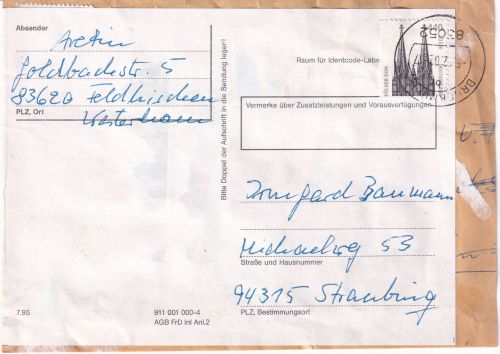 Absender
Aretin
Goldbachstr. 5
83620 Feldkirchen
Westerham
PLZ, Ort
Bitte Doppel der Aufschrift in die Sendung legen!
Raum für Identcode-Label
Vermerke über Zusatzleistungen und Vorausverfügungen
440
KÖLNER DOM
83052
BRUCKMÜ
Irmgard Baumann
Michaelweg 53
Straße und Hausnummer
94315 Straubing
PLZ, Bestimmungsort
7.95
911 001 000-4
AGB FrD Inl Anl.2